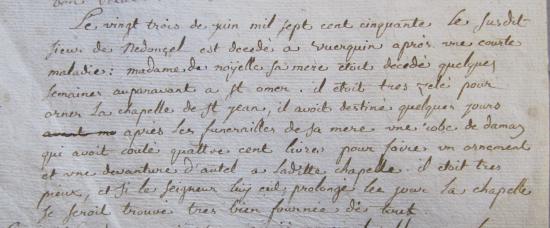 Le vingt trois de juin mil sept cent cinquante Le susdit
sieur de Nedonçel est decedé a vuerquin après vne courte
maladie: madame de noyelle sa mere étoit decedé quelques
semaines auparavant a St omer. il étoit tres zelé pour
orner La chapelle de St jean, il avoit destiné quelques jours
après Les funerailles de sa mere vne robe de damas
qui avoit couté quattre cent livres pour faire vn ornement
et vne devanture d'autel a Laditte chapelle. il étoit tres
pieux, et si le seigneur luy eut prolongé les jour La chapelle
se seroit trouvé tres bien fournée de tout.